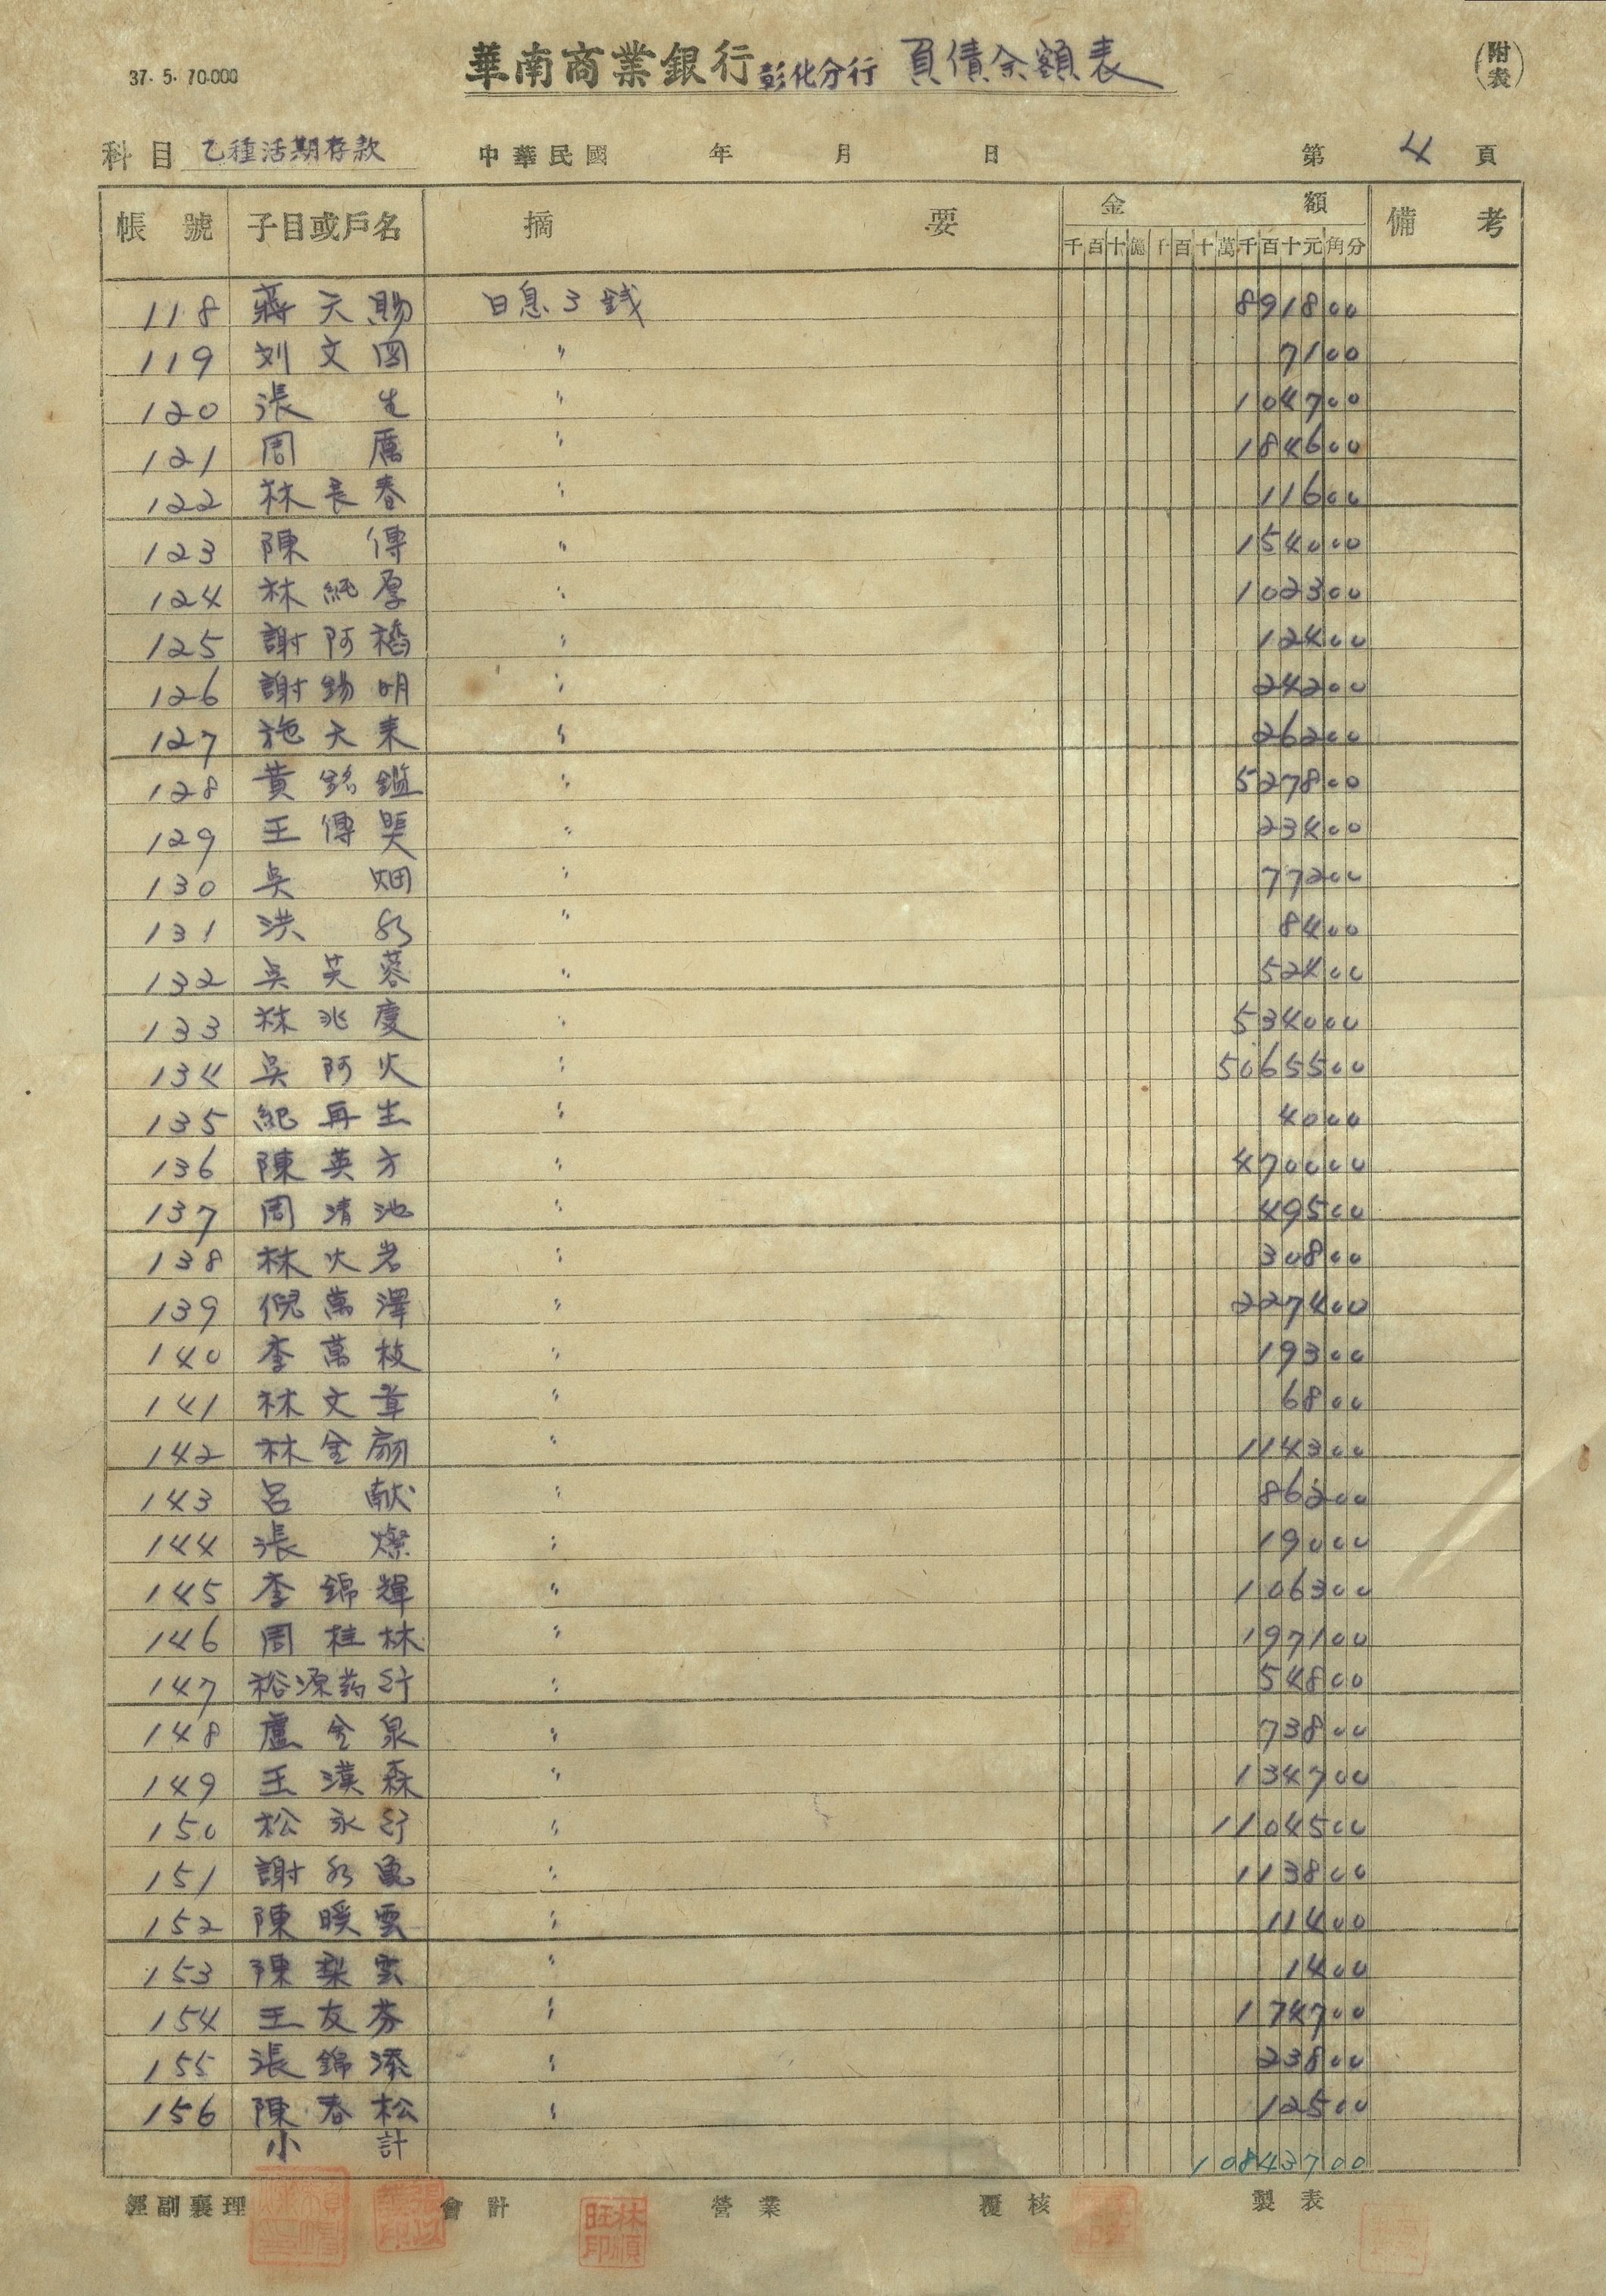 37. 5. 70.000
華南商業銀行彰化分行 負債余額表
(附表)
科目 乙種活期存款 中華民國 年 月 日 第 4 頁
帳號 子目或戶名 摘要 金額 備考
千百十億千百十萬千百十元角分
118 蔣天賜 日息3錢 891800
119 刘文図 〃 7100
120 張生 〃 104700
121 周厲 〃 184600
122 林長春 〃 11600
123 陳傳 〃 154000
124 林純厚 〃 102300
125 謝阿 〃 12400
126 謝錫明 〃 24200
127 施天来 〃 26200
128 黃銘鑑 〃 527800
129 王傳 〃 23400
130 吳畑 〃 77200
131 洪 〃 8400
132 吳芙蓉 〃 52400
133 林兆慶 〃 534000
134 吳阿火 〃 5065500
135 紀再生 〃 4000
136 陳英方 〃 470000
137 周清池 〃 49500
138 林火岩 〃 30800
139 倪萬澤 〃 227400
140 李萬枝 〃 19300
141 林文章 〃 6800
142 林金 〃 114300
143 呂献 〃 86200
144 張燦 〃 19000
145 李錦輝 〃 106300
146 周桂林 〃 197100
147 裕源葯行 〃 54800
148 盧金泉 〃 73800
149 王漢森 〃 134700
150 松永行 〃 1104500
151 謝水亀 〃 113800
152 陳暖雲 〃 11400
153 陳梨雲 〃 1400
154 王友芬 〃 174700
155 張錦添 〃 23800
156 陳春松 〃 12500
小計 10843700
經副襄理 會計 營業 覆核 製表
林順旺印